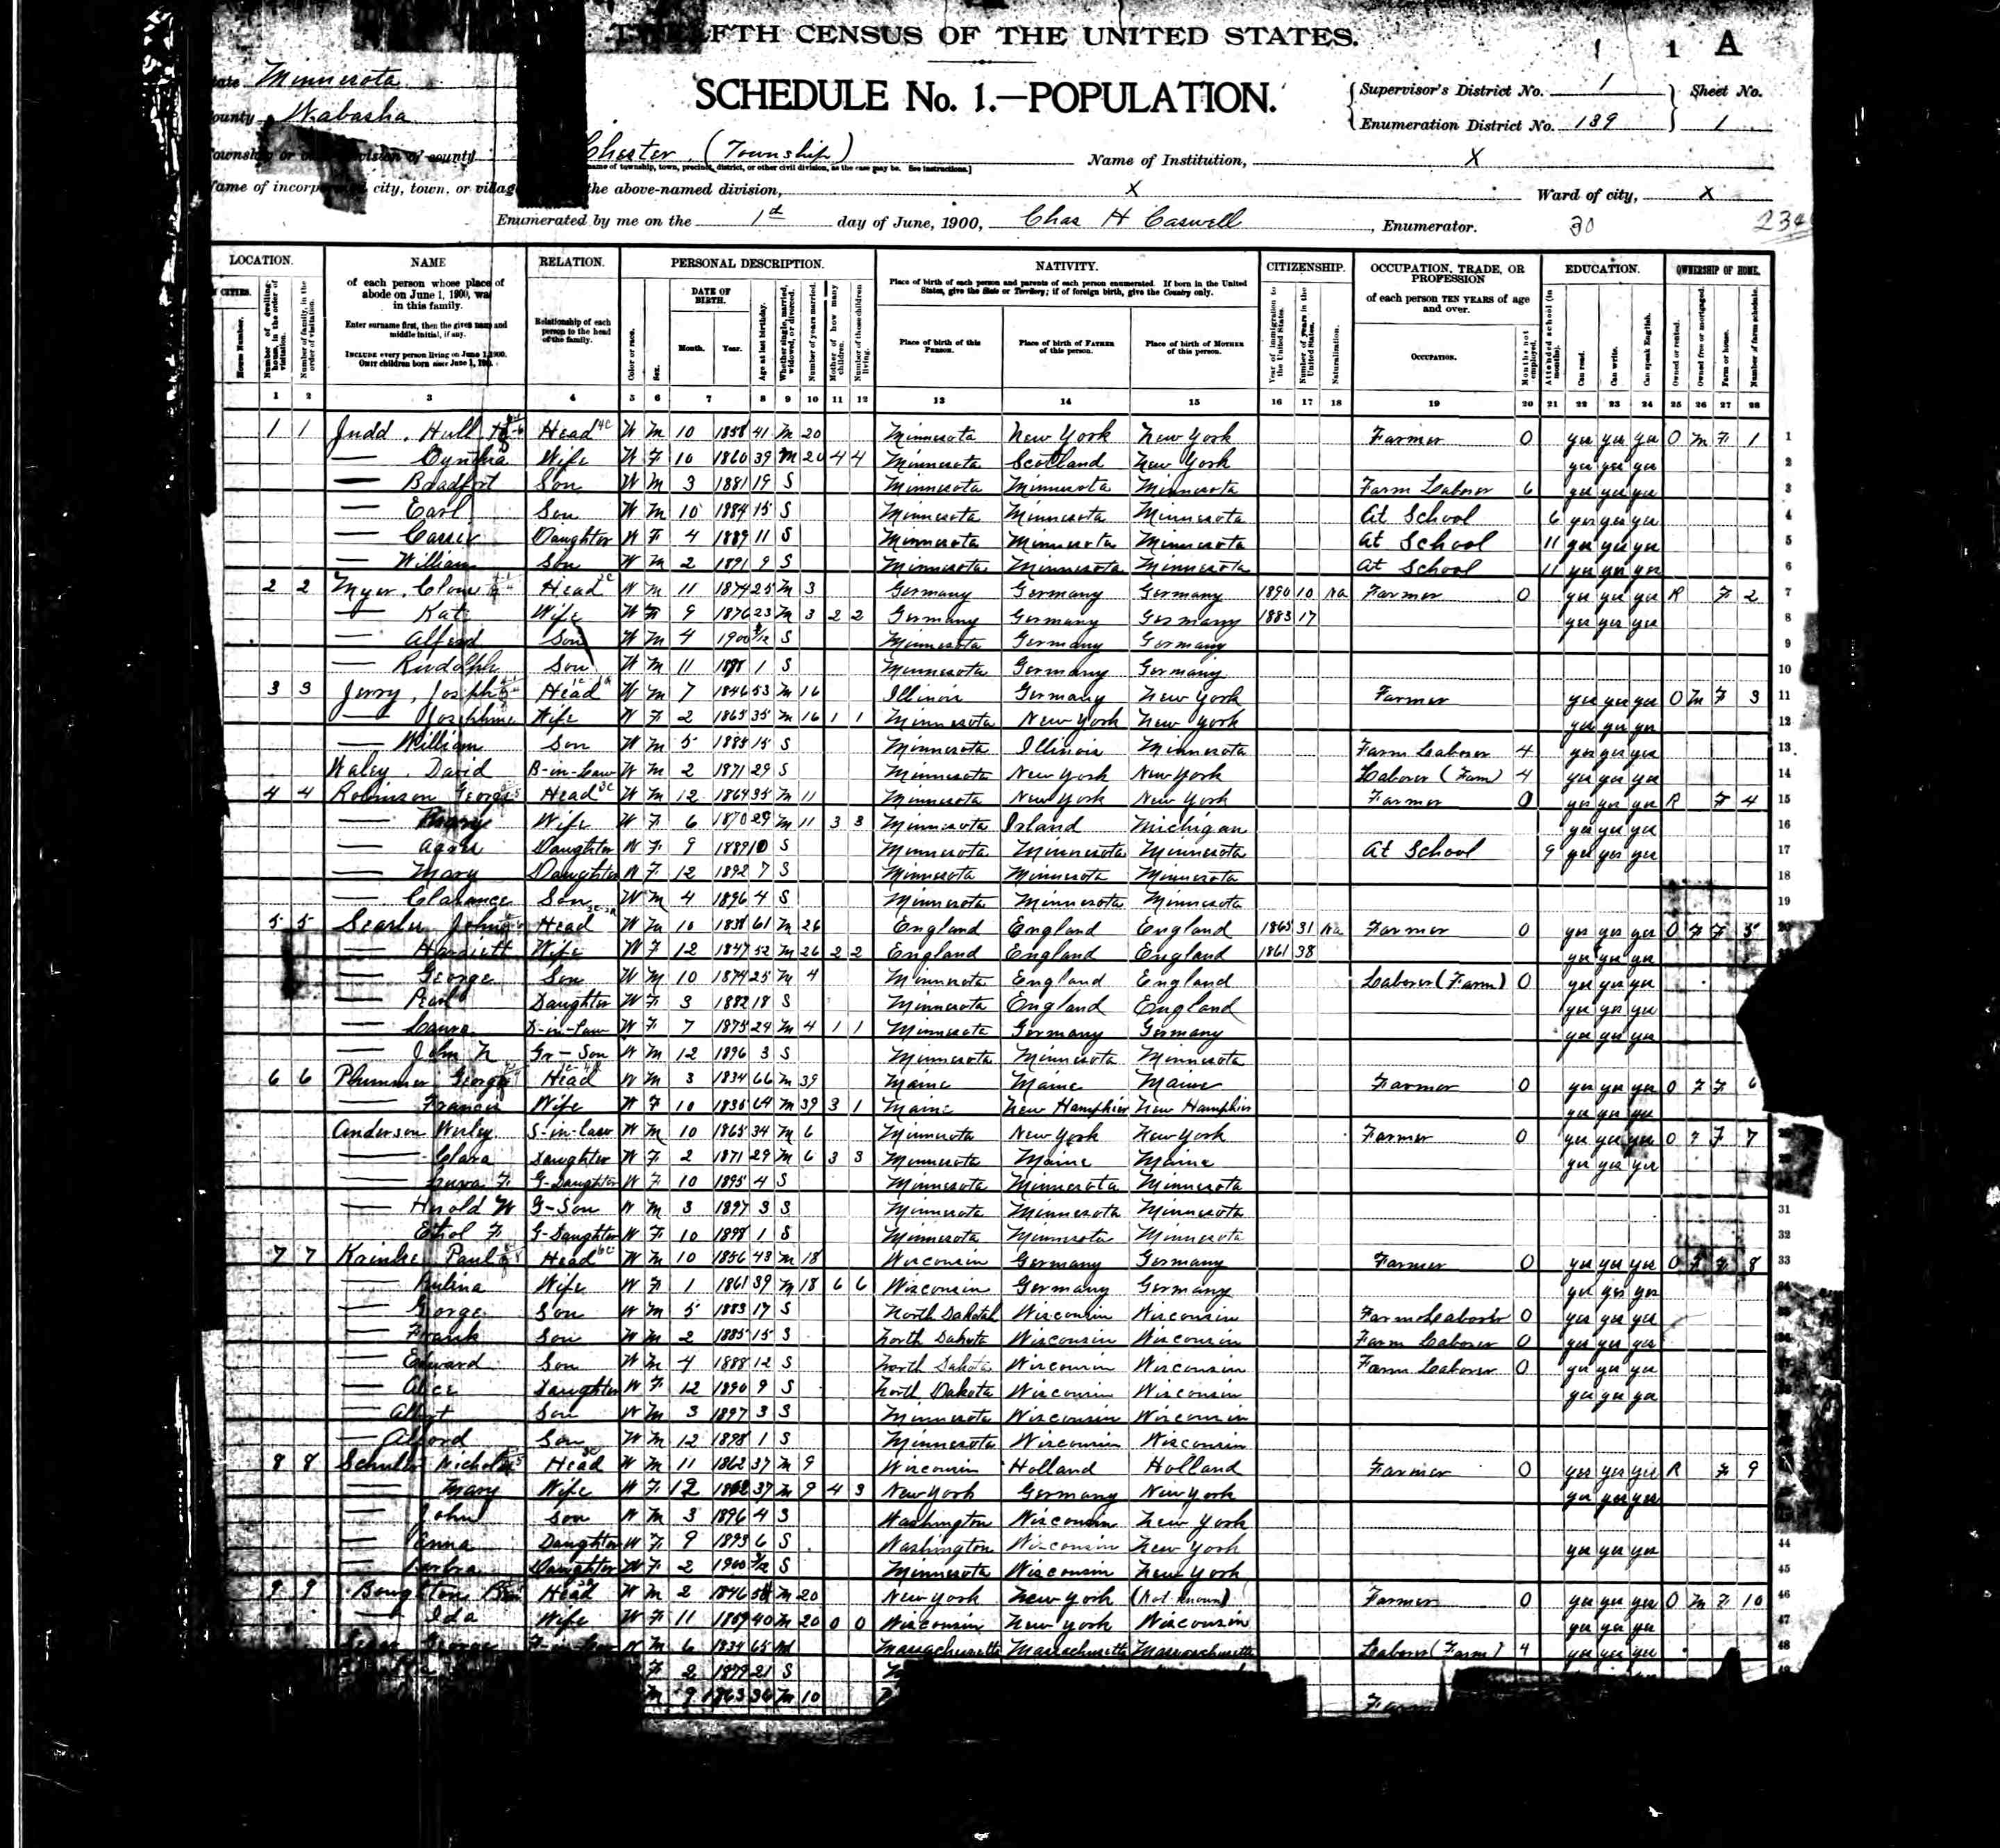 TWELFTH CENSUS OF THE UNITED STATES.
1 1 A
State Minnesota
County Wabasha
SCHEDULE No. 1.—POPULATION.
Supervisor's District No. 1 Sheet No.
Enumeration District No. 139 1
Township or other division of county Chester (Township) Name of Institution, X
[name of township, town, precinct, district, or other civil division, as the case may be. See instructions.]
Name of incorporated city, town, or village the above-named division, X Ward of city, X
Enumerated by me on the 1st day of June, 1900, Chas H Caswell, Enumerator. 30 234
LOCATION. NAME RELATION. PERSONAL DESCRIPTION. NATIVITY. CITIZENSHIP. OCCUPATION, TRADE, OR PROFESSION EDUCATION. OWNERSHIP OF HOME.
of each person whose place of abode on June 1, 1900, was in this family.
Enter surname first, then the given name and middle initial, if any.
INCLUDE every person living on June 1, 1900. OMIT children born since June 1, 1900.
Relationship of each person to the head of the family.
DATE OF BIRTH. Month. Year.
Place of birth of each person and parents of each person enumerated. If born in the United States, give the State or Territory; if of foreign birth, give the Country only.
Place of birth of this PERSON. Place of birth of FATHER of this person. Place of birth of MOTHER of this person.
of each person TEN YEARS of age and over.
OCCUPATION.
1 2 3 4 5 6 7 8 9 10 11 12 13 14 15 16 17 18 19 20 21 22 23 24 25 26 27 28
1 1 Judd, Hull Head W M 10 1858 41 M 20 Minnesota New York New York Farmer 0 yes yes yes O M F 1 1
— Cynthia Wife W F 10 1860 39 M 20 4 4 Minnesota Scotland New York yes yes yes 2
— Bradfort Son W M 3 1881 19 S Minnesota Minnesota Minnesota Farm Laborer 6 yes yes yes 3
— Earl Son W M 10 1884 15 S Minnesota Minnesota Minnesota At School 6 yes yes yes 4
— Carrie Daughter W F 4 1889 11 S Minnesota Minnesota Minnesota At School 11 yes yes yes 5
— William Son W M 2 1891 9 S Minnesota Minnesota Minnesota At School 11 yes yes yes 6
2 2 Myer, Head W M 11 1874 25 M 3 Germany Germany Germany 1890 10 Na Farmer 0 yes yes yes R F 2 7
— Kate Wife W F 9 1876 23 M 3 2 2 Germany Germany Germany 1883 17 yes yes yes 8
— Alferd Son W M 4 1900 S Minnesota Germany Germany 9
— Rudolph Son W M 11 1898 1 S Minnesota Germany Germany 10
3 3 Jerry, Joseph Head W M 7 1846 53 M 16 Illinois Germany New York Farmer yes yes yes O M F 3 11
— Josephine Wife W F 2 1865 35 M 16 1 1 Minnesota New York New York yes yes yes 12
— William Son W M 5 1885 15 S Minnesota Illinois Minnesota Farm Laborer 4 yes yes yes 13
Waley, David B-in-Law W M 2 1871 29 S Minnesota New York New York Laborer (Farm) 4 yes yes yes 14
4 4 Robinson George Head W M 12 1864 35 M 11 Minnesota New York New York Farmer 0 yes yes yes R F 4 15
— Mary Wife W F 6 1870 29 M 11 3 3 Minnesota Irland Michigan yes yes yes 16
— Daughter W F 9 1889 10 S Minnesota Minnesota Minnesota At School 9 yes yes yes 17
— Mary Daughter W F 12 1892 7 S Minnesota Minnesota Minnesota 18
— Clarance Son W M 4 1896 4 S Minnesota Minnesota Minnesota 19
5 5 Searles John Head W M 10 1838 61 M 26 England England England 1865 31 Na Farmer 0 yes yes yes O F F 5 20
— Harriett Wife W F 12 1847 52 M 26 2 2 England England England 1861 38 yes yes yes
— George Son W M 10 1874 25 M 4 Minnesota England England Laborer (Farm) 0 yes yes yes
— Pearl Daughter W F 3 1882 18 S Minnesota England England yes yes yes
— Laura D-in-Law W F 7 1875 24 M 4 1 1 Minnesota Germany Germany yes yes yes
— John Gr-Son W M 12 1896 3 S Minnesota Minnesota Minnesota
6 6 Plummer George Head W M 3 1834 66 M 39 Maine Maine Maine Farmer 0 yes yes yes O F F 6
— Frances Wife W F 10 1835 64 M 39 3 1 Maine New Hamphier New Hamphier yes yes yes
Anderson Wesley S-in-law W M 10 1865 34 M 6 Minnesota New York New York Farmer 0 yes yes yes O F 7
— Clara Daughter W F 2 1871 29 M 6 3 3 Minnesota Maine Maine yes yes yes
— F G-Daughter W F 10 1895 4 S Minnesota Minnesota Minnesota
— Herold W G-Son W M 3 1897 3 S Minnesota Minnesota Minnesota 31
Ethol F G-Daughter W F 10 1898 1 S Minnesota Minnesota Minnesota 32
7 7 Paul Head W M 10 1856 43 M 18 Wisconsin Germany Germany Farmer 0 yes yes yes O F F 8 33
— Pulina Wife W F 1 1861 39 M 18 6 6 Wisconsin Germany Germany yes yes yes
— Gorge Son W M 5 1883 17 S North Dakota Wisconsin Wisconsin Farm Laborer 0 yes yes yes
— Frank Son W M 2 1885 15 S North Dakota Wisconsin Wisconsin Farm Laborer 0 yes yes yes
— Edward Son W M 4 1888 12 S North Dakota Wisconsin Wisconsin Farm Laborer 0 yes yes yes
— Alice Daughter W F 12 1890 9 S North Dakota Wisconsin Wisconsin yes yes yes
— Albert Son W M 3 1897 3 S Minnesota Wisconsin Wisconsin
— Alford Son W M 12 1898 1 S Minnesota Wisconsin Wisconsin
8 8 Schuler Nicholas Head W M 11 1862 37 M 9 Wisconsin Holland Holland Farmer 0 yes yes yes R F 9
— Mary Wife W F 12 1862 37 M 9 4 3 New York Germany New York yes yes yes
— John Son W M 3 1896 4 S Washington Wisconsin New York
— Anna Daughter W F 9 1893 6 S Washington Wisconsin New York yes yes yes 44
— Daughter W F 2 1900 3/12 S Minnesota Wisconsin New York 45
9 9 Boughton Head W M 2 1846 54 M 20 New York New York (Not Known) Farmer 0 yes yes yes O M F 10 46
— Ida Wife W F 11 1859 40 M 20 0 0 Wisconsin New York Wisconsin yes yes yes 47
George F-in-law W M 6 1834 65 Wd Massachusetts Massachusetts Massachusetts Labors (Farm) 4 yes yes yes 48
F 2 1879 21 S
M 9 1863 36 M 10